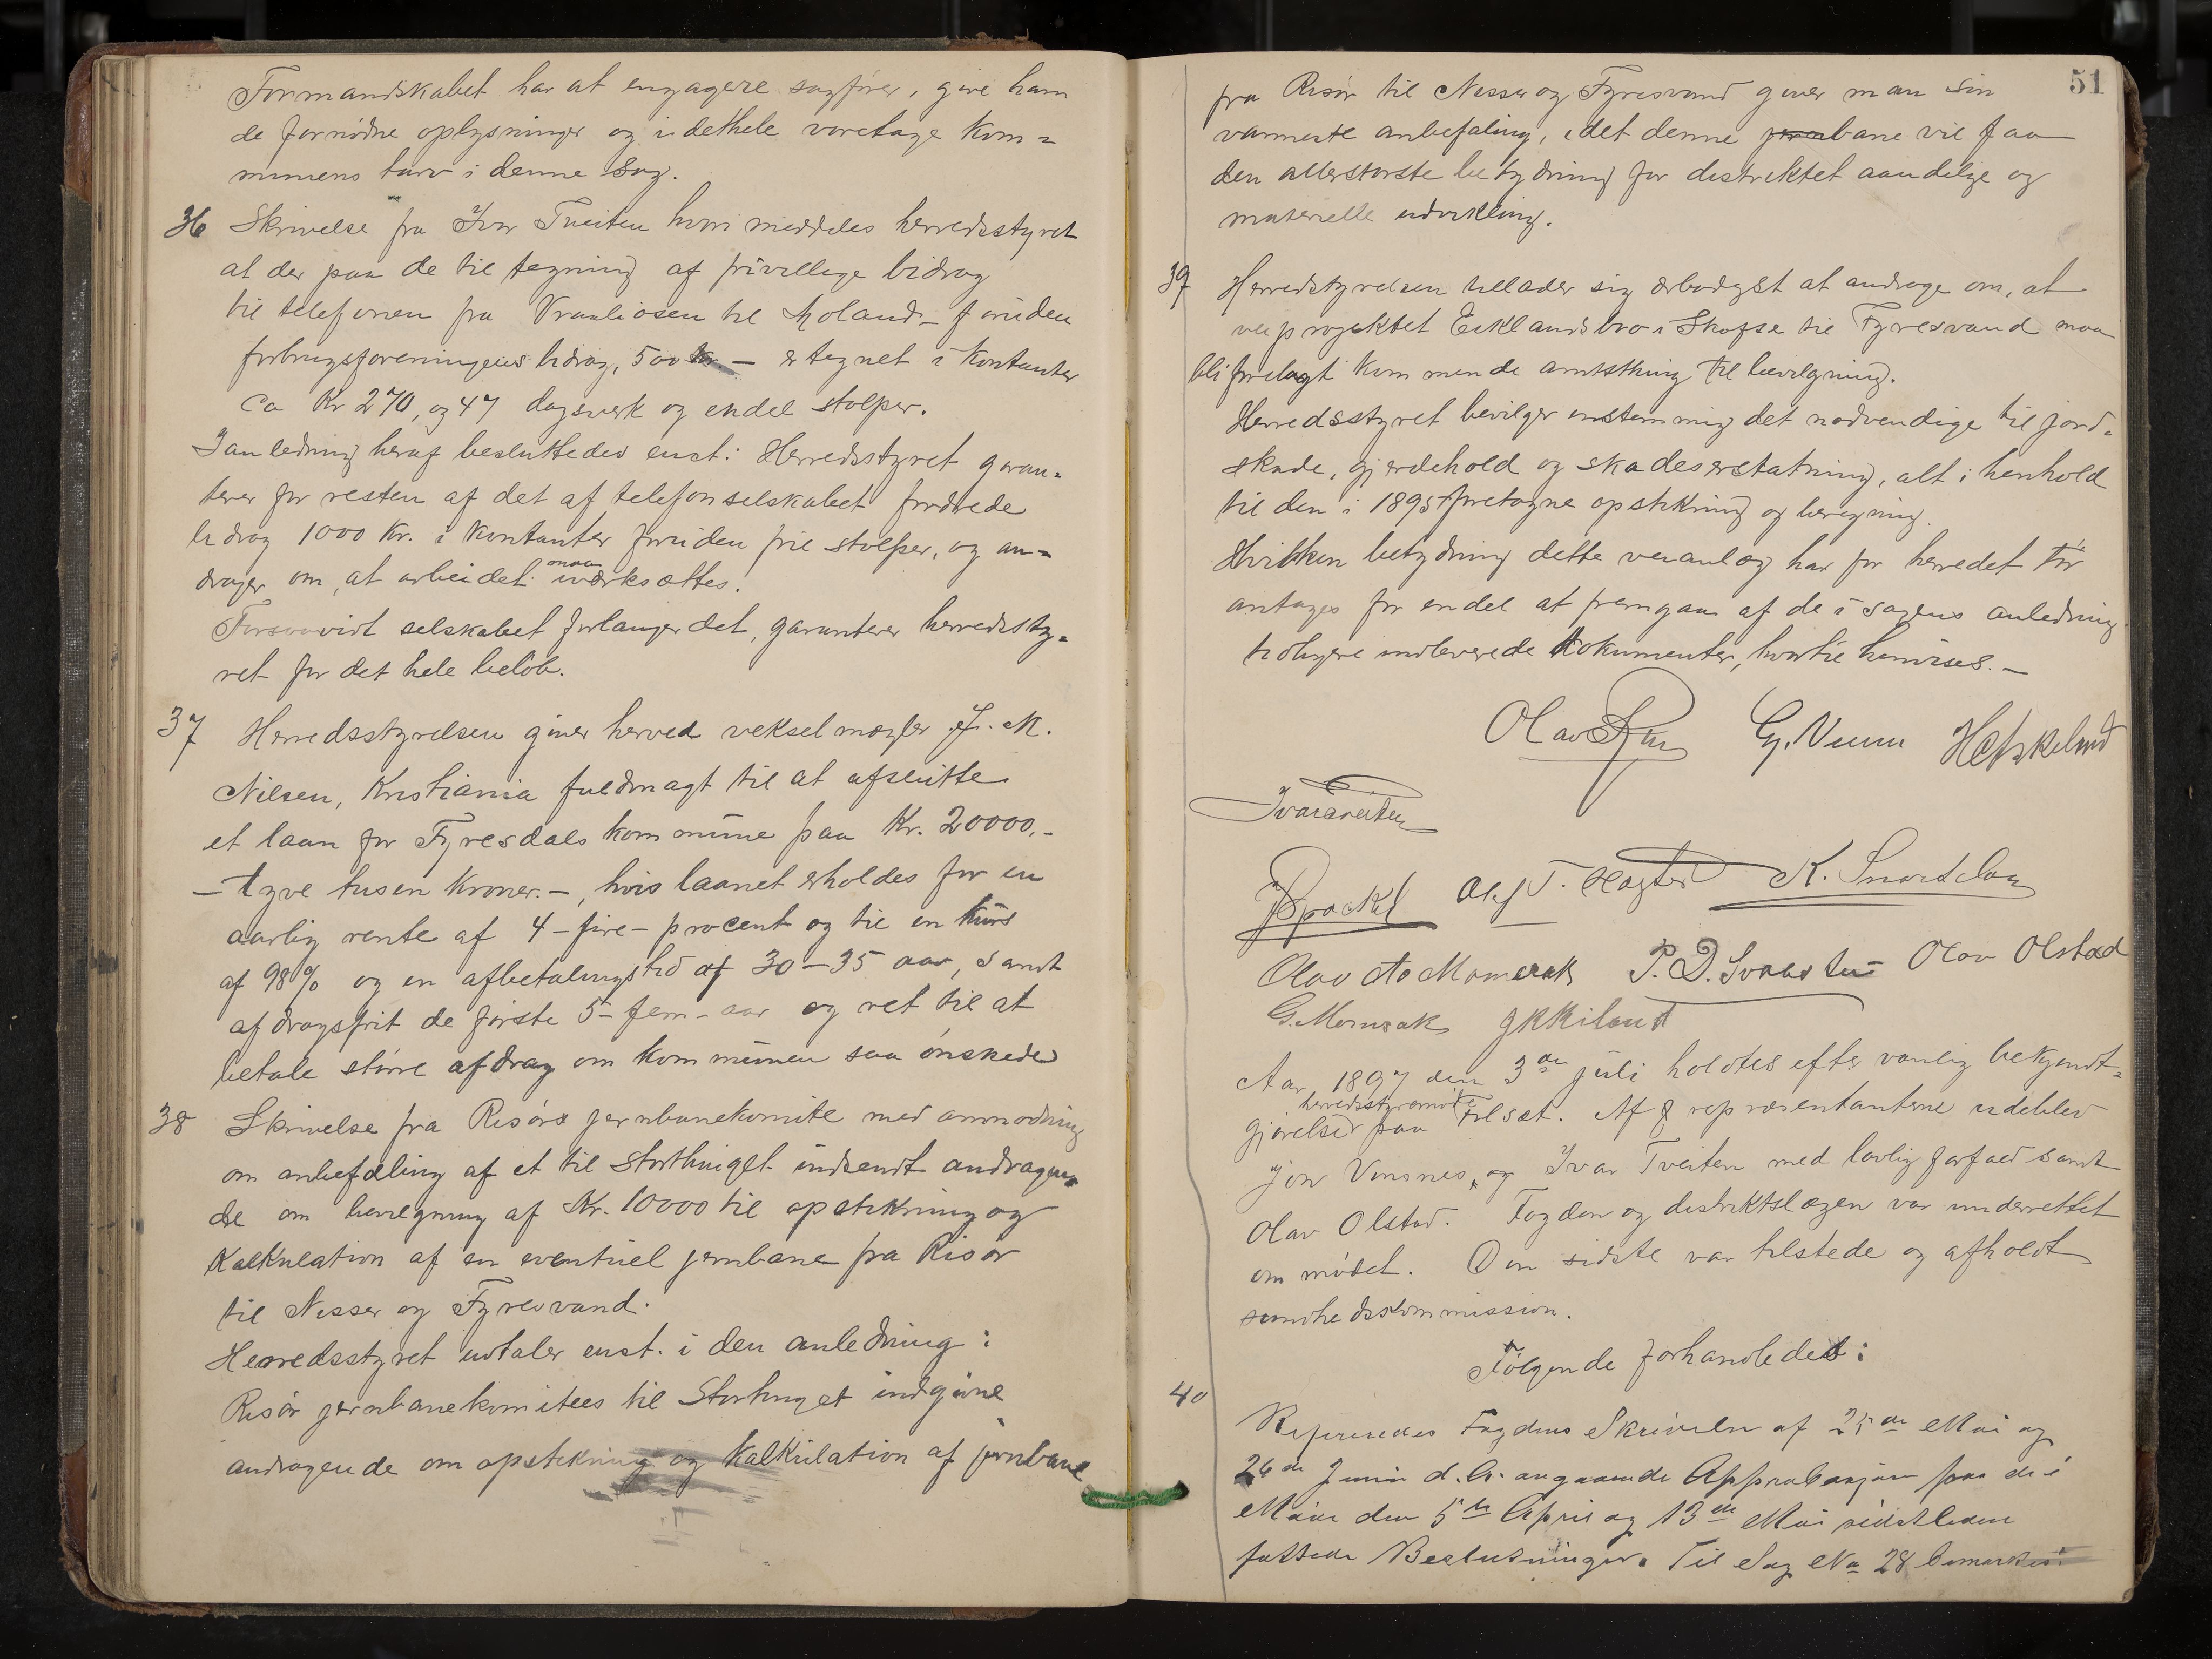 Formandskabet har at engagere sagfører, give ham
de fornødne oplysninger og i dethele varetage kom=
munens tarv i denne sag.
36 Skrivelse fra Ivar Tveiten hvori meddeles herredsstyret
at der paa de til tegning af frivillige bidrag
til telefonen fra Vraaliosen til Moland – foruden
forbrugsforeningens bidrag, 500 kr. – er tegnet i kontanter
ca Kr 270, og 47 dagsverk og endel stolper.
I anledning heraf besluttedes enst.: Herredsstyret garan=
terer for resten af det af telefonselskabet fordrede
bidrag 1000 kr. i kontanter foruden frie stolper, og an=
drager om, at arbeidet maa iværksættes.
Forsaavidt selskabet forlanger det, garanterer herredssty=
ret for det hele beløb.
37 Herredsstyrelsen giver herved vekselmægler J. M.
Nilsen, Kristiania fuldmagt til at afslutte
et laan for Fyresdals kommune paa Kr. 20000,–
– tyve tusen kroner. –, hvis laanet erholdes for en
aarlig rente af 4 – fire – procent og til en kurs
af 98% og en afbetalingstid af 30 – 35 aar, samt
afdragsfrit de første 5 – fem – aar og ret til at
betale større afdrag om kommunen saa ønskede
38 Skrivelse fra Risørs jernbanekomite med anmodning
om anbefaling af et til Storthinget indsendt andragen
de om bevilgning af Kr. 10000 til opstikning og
kalkulation af en eventuel jernbane fra Risør
til Nisser og Fyresvand.
Herredsstyret udtaler enst. i den anledning:
Risør jernbanekomitees til Stortinget indgivne
andragende om opstikning og kalkulation af jernbane
51
fra Risør til Nisser og Fyresvand giver man sin
varmeste anbefaling, idet denne bane vil faa
den allerstørste betydning for distriktet aandelige og
materielle udvikling.
39 Herredstyrelsen tillader sig ærbødigst at andrage om, at
veiprojektet Eiklandsbro i Skafse til Fyresvand maa
bli forelagt kommende amtsthing til bevilgning.
Herredsstyret bevilger enstemmig det nødvendige til jord=
skade, gjerdehold og skadeserstatning, alt i henhold
til den i 1895 foretagne opstikning og beregning.
Hvilken betydning dette veianlæg har for herredet tør
antages for endel at fremgaa af de i sagens anledning
tidligere indleverede dokumenter, hvortil henvises. –
G. Veum
Ivar Tveiten
Olav Olstad
G. Momrak
Aar 1897 den 3die juli holdtes efter vanlig bekjendt=
gjørelse herredsstyremøde paa Folsæt. Af repræsentanterne udeblev
Jon Vinsnes, og Ivar Tveiten med lovlig forfald samt
Olav Olstad. Fogden og distriktslægen var underrettet
om mødet. Den sidste var tilstede og afholdt
sundhedskommission.
Følgende forhandledes:
40
Refereredes Fogdens Skrivelse af 25de Mai og
26de Juni d. A. angaaende Approbasjon paa de i
Møde den 5te April og 13de Mai sidstleden
fattede Beslutninger. Til Sag No 28 bemærkes: